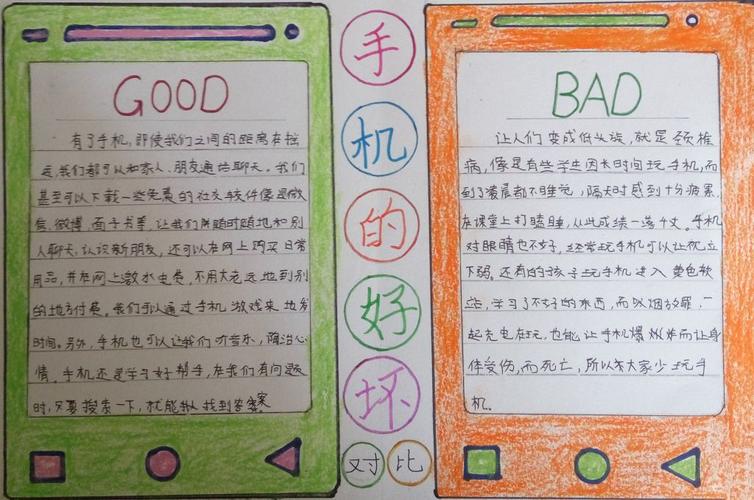 GOOD
有了手机,即使我们之间的距离在摇
远,我们都可以和家人、朋友通话聊天。我们
甚至可以下载一些免费的社交软件像是微
信、微博、面子书等,让我们所随时随地和别
人聊天,认识新朋友,还可以在网上购买日常
用品,并在网上缴水电费,不用大老远地到别
的地方付费。我们可以通过手机游戏来地发
时间。另外,手机也可以让我们听音乐,陶冶心
情。手机还是学习好帮手,在我们有问题
时,只要搜索一下,就能找到答案
手
机
的
好
坏
对比
BAD
让人们变成低头族,就是颈椎
病,像是有些学生因长时间玩手机,而
到了凌晨都不睡觉,隔天时感到十分疲累,
在课堂上打瞌睡,从此成绩一落千丈。手机
对眼睛也不好,经常玩手机可以让视立
下弱。还有的孩子玩手机进入黄色软
学习了不好的东西,而以烟放罪,一
起充电在玩,也能让手机爆炸而让身
体受伤,而死亡,所以大家少玩手
机.